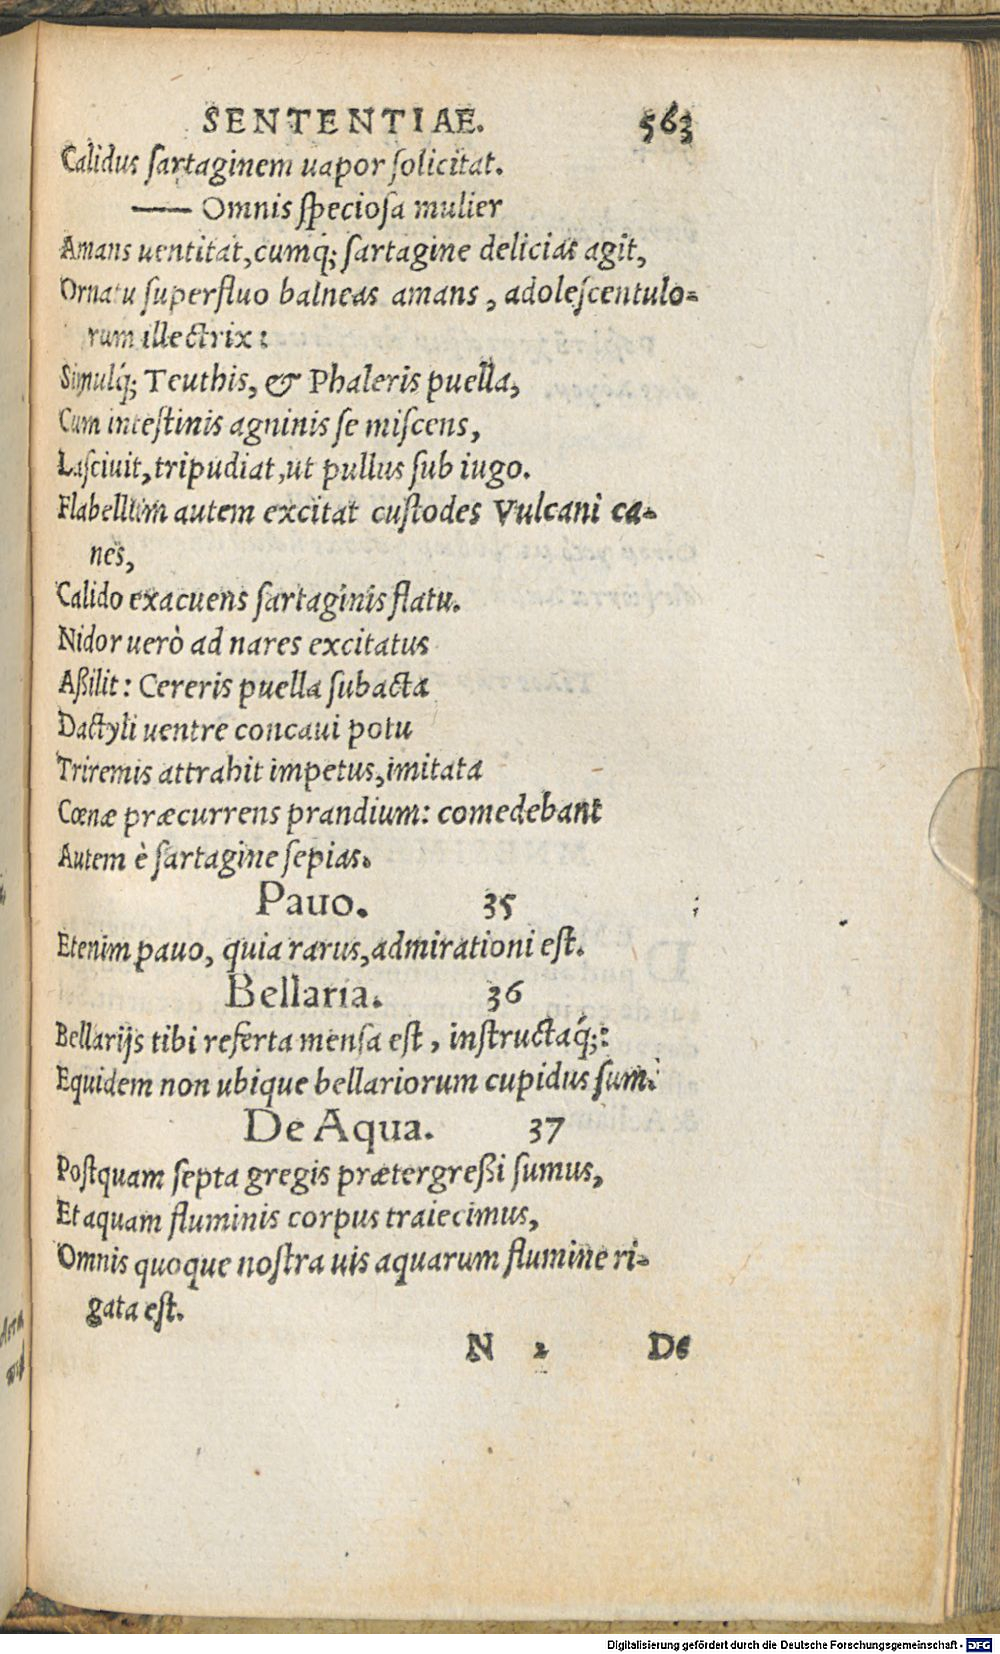 SENTENTIAE. 563
Calidus ſartaginem uapor ſolicitat.
—— Omnis ſpecioſa mulier
Amans uentitat, cumq́; ſartagine delicias agit,
Ornatu ſuperfluo balneas amans, adoleſcentulo-
rum illectrix:
Simulq́; Teuthis, & Phaleris puella,
Cum inteſtinis agninis ſe miſcens,
Laſciuit, tripudiat, ut pullus ſub iugo.
Flabellum autem excitat cuſtodes Vulcani ca-
nes,
Calido exacuens ſartaginis flatu.
Nidor uerò ad nares excitatus
Aßilit: Cereris puella ſubacta
Dactyli uentre concaui potu
Triremis attrahit impetus, imitata
Cœnæ præcurrens prandium: comedebant
Autem è ſartagine ſepias.
Pauo. 35
Etenim pauo, quia rarus, admirationi eſt.
Bellaria. 36
Bellarijs tibi referta menſa eſt, inſtructaq́;:
Equidem non ubique bellariorum cupidus ſum.
De Aqua. 37
Poſtquam ſepta gregis prætergreßi ſumus,
Et aquam fluminis corpus traiecimus,
Omnis quoque noſtra uis aquarum flumine ri-
gata eſt.
N 2 De
Digitalisierung gefördert durch die Deutsche Forschungsgemeinschaft - DFG